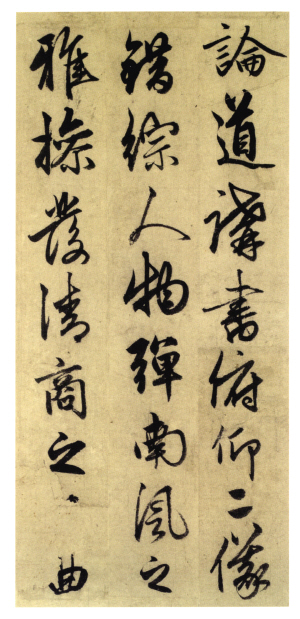 論道講書俯仰二儀
錯綜人物彈南風之
雅操發清商之曲